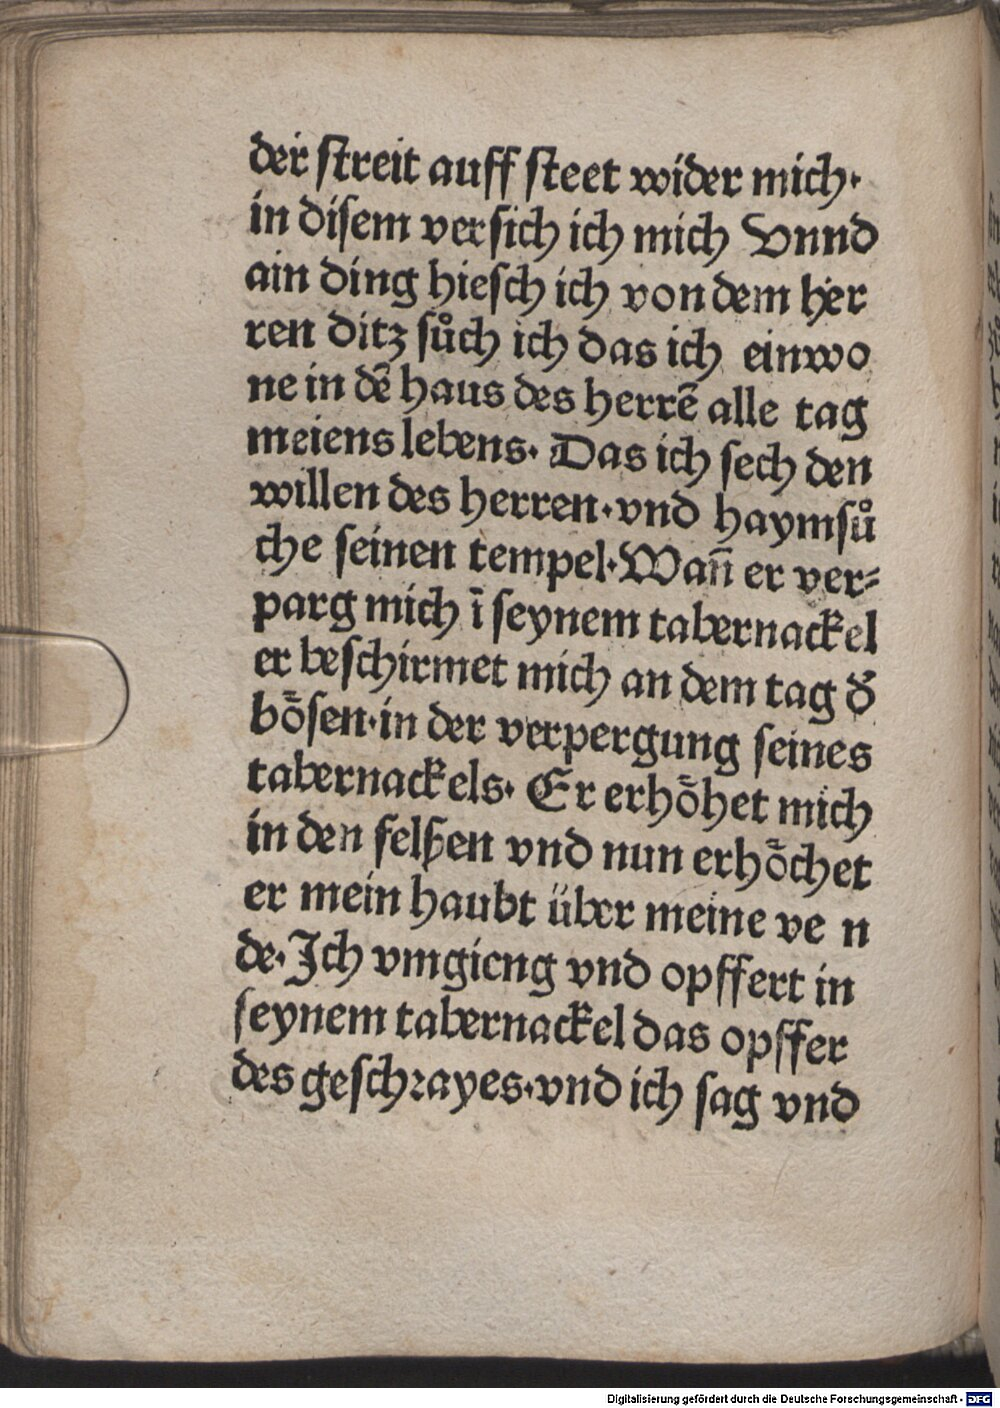 der streit auff steet wider mich·
in disem versich ich mich Vnnd
ain ding hiesch ich von dem her
ren ditz sůch ich das ich einwo
ne in dē haus des herrē alle tag
meiens lebens· Das ich sech den
willen des herren·vnd haymsů
che seinen tempel·Wañ er ver-
parg mich ī seynem tabernackel
er beschirmet mich an dem tag d̾
bösen·in der verpergung seines
tabernackels· Er erhöhet mich
in den felßen vnd nun erhöchet
er mein haubt über meine ve n
de·Ich vmgieng vnd opffert in
seynem tabernackel das opffer
des geschrayes·vnd ich sag vnd
Digitalisierung gefördert durch die Deutsche Forschungsgemeinschaft - DFG